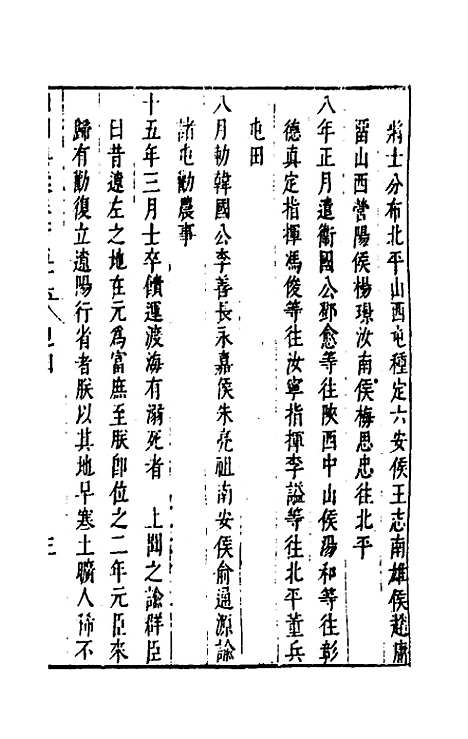 將士分布北平山西屯種定六安侯王志南雄侯趙庸
留山西營陽侯楊璟汝南侯梅思忠往北平
八年正月遣衛國公鄧愈等往陝西中山侯湯和等往彰
德真定指揮馮俊等往汝寧指揮李謚等往北平董兵
屯田
八月勑韓國公李善長永嘉侯朱亮祖南安侯俞通源諭
諸屯勸農事
十五年三月士卒饋運渡海有溺死者 上聞之諭群臣
曰昔遼左之地在元爲富庶至朕卽位之二年元臣來
歸有勸復立遼陽行省者朕以其地早寒土曠人稀不